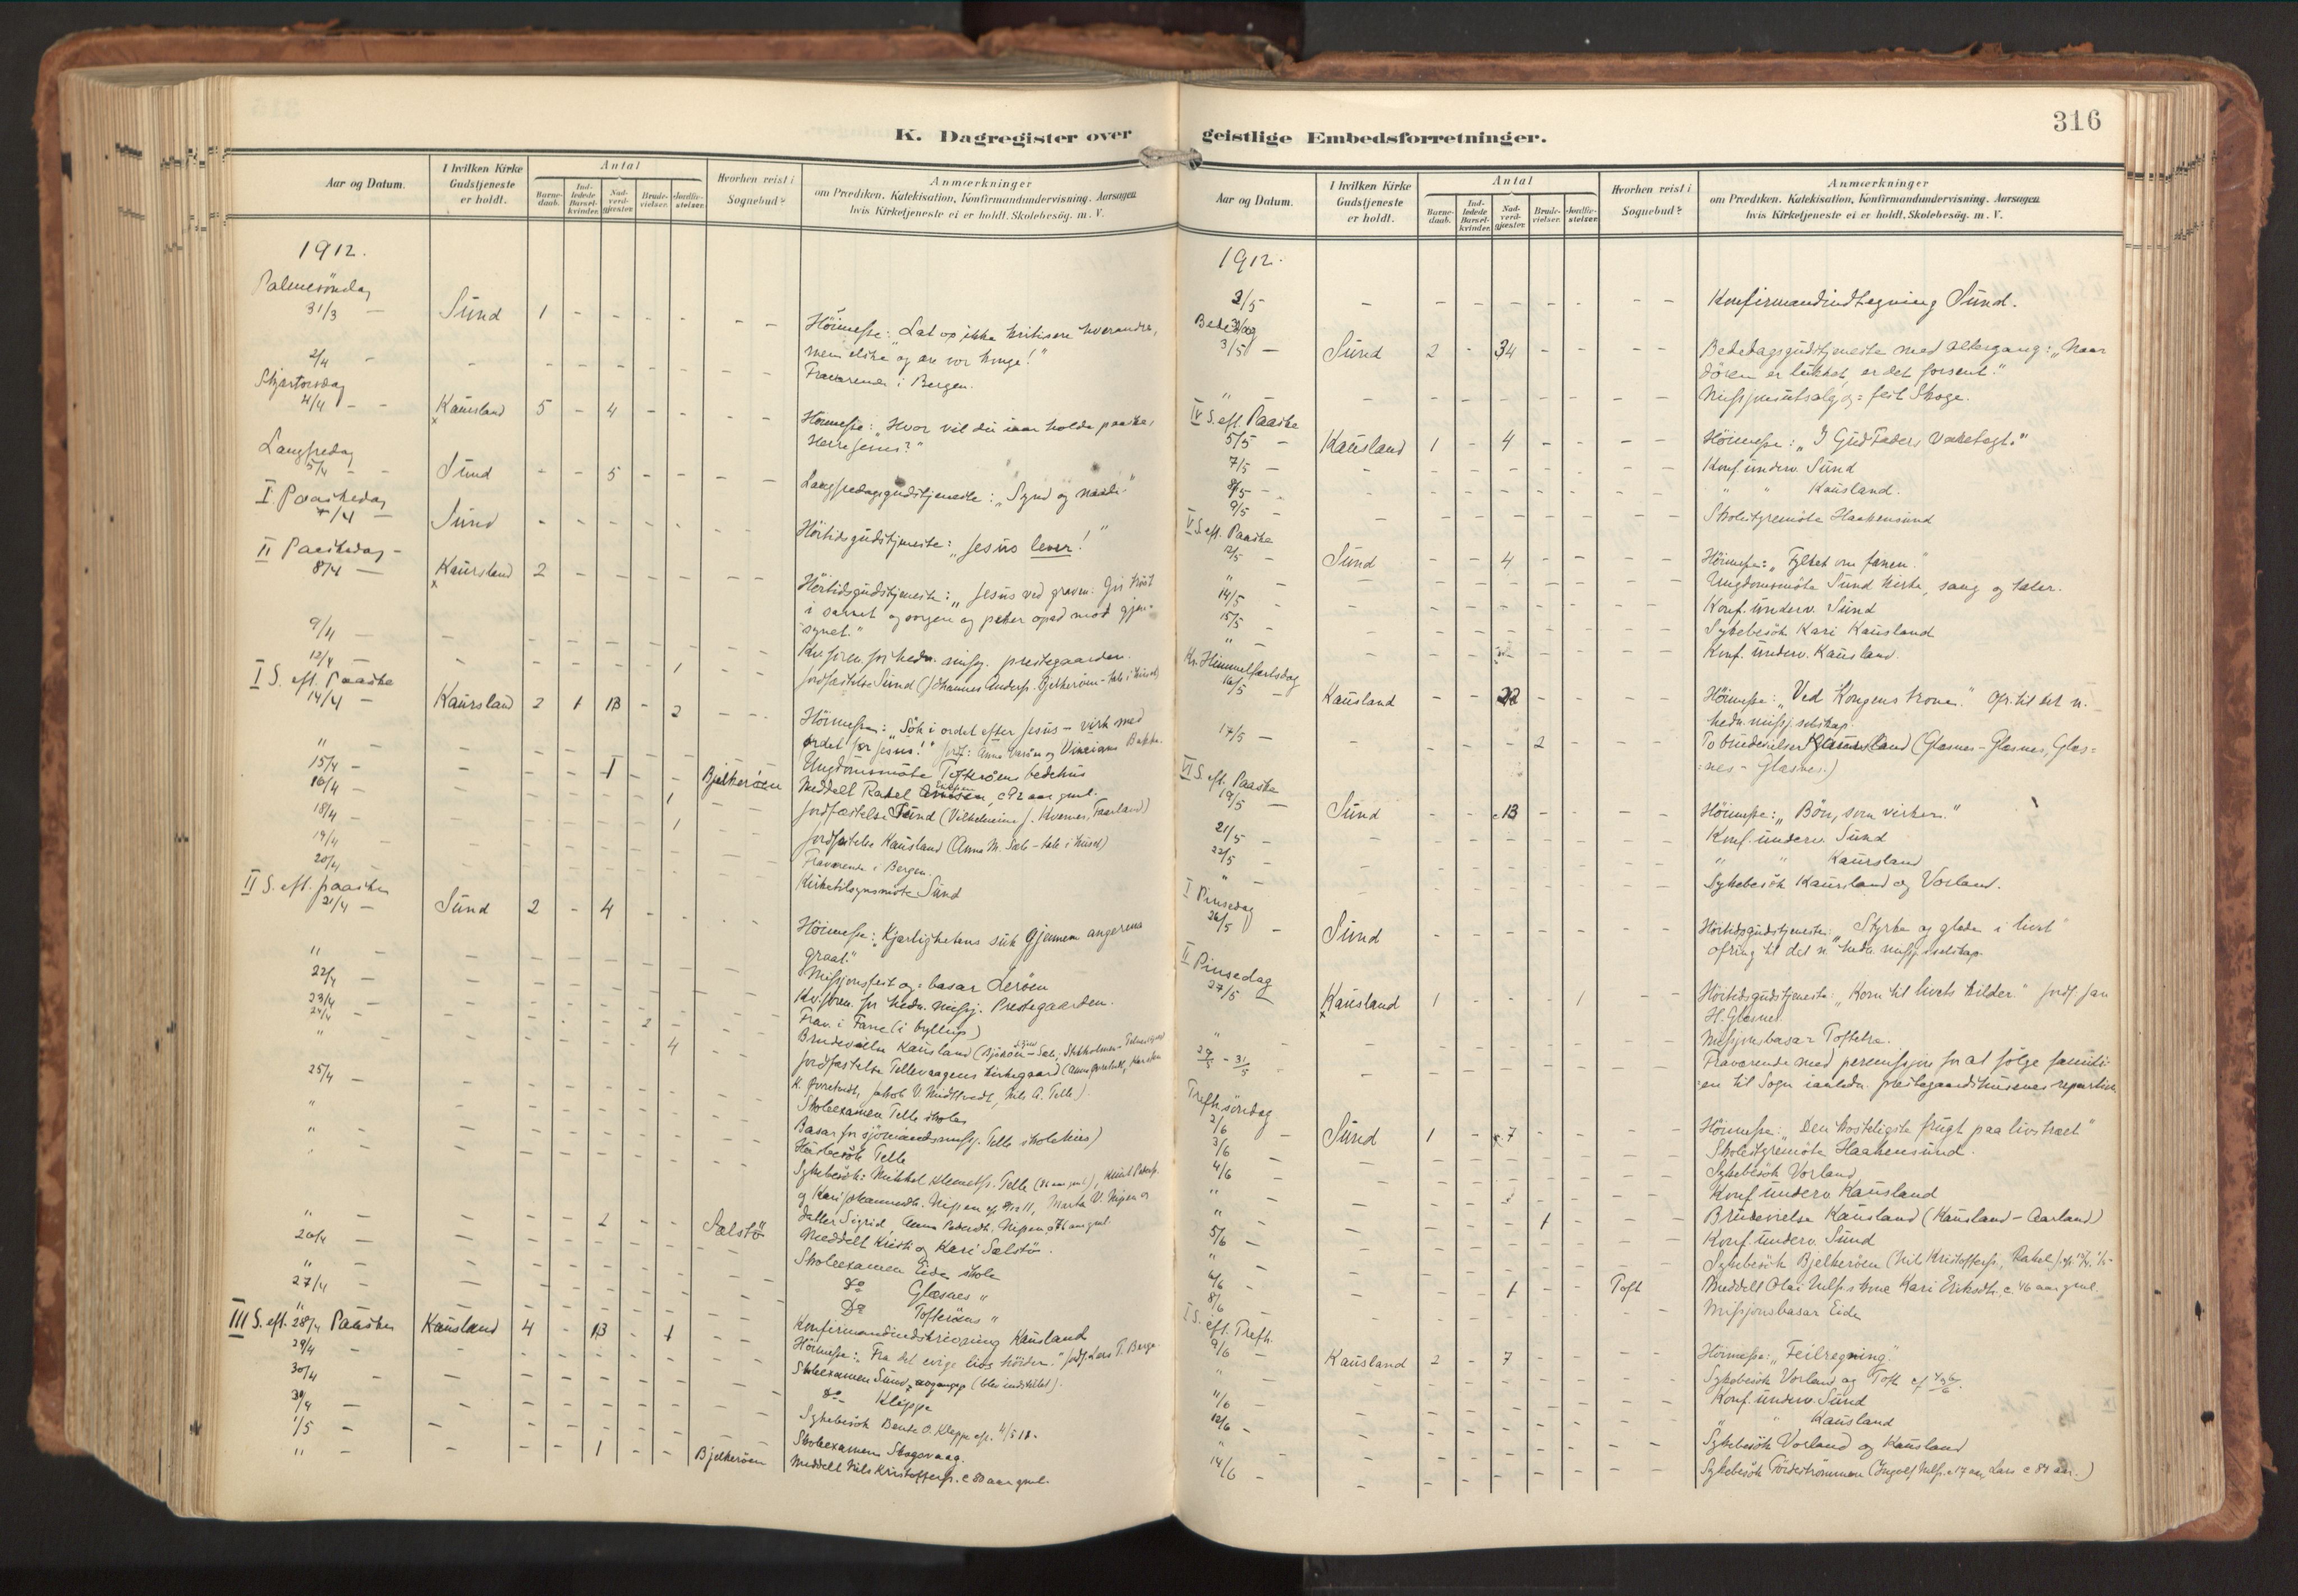 K. Dagregister over
Aar og Datum.
I hvilken Kirke Gudstjeneste er holdt.
Antal
Barnedaab.
Indledede Barselkvinder.
Nadverdgjæster.
Brudevielser.
Jordfæstelser.
Hvorhen reist i Sognebud?
Anmærkninger
om Prædiken, Katekisation, Konfirmandundervisning. Aarsagen
hvis Kirketjeneste ei er holdt, Skolebesög. m. V.
1912.
Palmesöndag
31/3 — Sund 1 - - - - - - Höimesse: "Lat os ikke kritisere hverandre,
men elske og be for
2/4 - - - - - - Fraværende i Bergen.
Skjærtorsdag
4/4 - - Kausland 5 - 4 - - - - Höimesse: "Hvor vil du iaar holde paaske,
Herre Jesus?"
Langfredag
5/4 - - Sund - - 5 - - - - Langfredagsgudstjeneste: "Synd og naade."
I Paaskedag
7/4 — Sund - - - - - - - Höitidsgudstjeneste: "Jesus lever!"
II Paaskedag -
8/4 — Kausland 2 - - - - - - Höitidsgudstjeneste: "Jesus ved graven: Gir tröst
i savnet og sorgen og peker opad mod gjen-
synet."
9/4 — - - - - - - Kv.foren. for hedn. missj. prestegaarden.
12/4 — - - - - 1 - - Jordfæstelse Sund (Johannes Anderss. Bjelkeröen - tale i huset)
I S. eft. Paaske
14/4 — Kausland 2 1 13 - 2 - - Höimesse: "Sök i ordet efter Jesus - virk med
ordet for Jesus!"
" - Ungdomsmöte Tofteröens bedehus
15/4 - - - 1 - - Bjelkeröen Meddelt Rakel c 92 aar gml.
16/4 - - - - - 1 - Jordfæstelse Sund
18/4 - - - - - 1 - Jordfæstelse Kausland (Anna M. Sæle - tale i huset)
19/4 - Fraværende i Bergen.
20/4 Kirketilsynsmöte Sund
II S. eft. paaske
21/4 — Sund 2 - 4 - - - - Höimesse: "Kjærlighetens suk gjennem angerens
graat."
" - Missjonsfest og =basar Leröen
22/4 - Kv.foren. for hedn. missj. Prestegaarden.
23/4 - Frav. i Fane (i byllup)
24/4 - - - - 2 - - Brudevielse Kausland
" - - - - - 4 - Jordfæstelse Tellevaagens kirkegaard
K. Jakob V. Midttveit, Nils A. Telle)
25/4 - Skoleexamen Telle skole
" Basar for sjömandsmissj. Telle skolehus)
" Husbesök Telle
Sykebesök: Mikkel Klemetss. Telle
datter Sigrid, Anna
" - - - 2 - - Salstö Meddelt Kristi og Kari Salstö.
26/4 - Skoleexamen Eide skole
" - Do Glæsnes "
27/4 - Do Tofteröens "
" Konfirmandindskrivning Kausland
III S. eft. 28/4 Paaske Kausland 4 - 13 - 1 - - Höimesse: "Fra det evige livs höider." Jordf. Lars T. Berge.
29/4 - Skoleexamen Sund (blev indstillet).
30/4 - do Kleppe
30/4 — Sykebesök Bente O. Kleppe
1/5 — Skoleexamen Skogsvaag.
" - - - - 1 - - Bjelkeröen Meddelt Nils Kristofferss. c 80 aar gml.
geistlige Embedsforretninger.
316
Aar og Datum.
I hvilken Kirke Gudstjeneste er holdt.
Antal
Barnedaab.
Indledede Barselkvinder.
Nadverdgjæster.
Brudevielser.
Jordfæstelser.
Hvorhen reist i Sognebud?
Anmærkninger
om Prædiken, Katekisation, Konfirmandundervisning. Aarsagen
hvis Kirketjeneste ei er holdt, Skolebesög. m. V.
1912.
2/5 - - - - - - - - Konfirmandindtegning Sund.
Bededag
3/5 — Sund 2 - 34 - - - - Bededagsgudstjeneste med altergang: "Naar
dören er lukket, er det forsent."
" - Missjonsutsalg og =fest Skoge.
IV S. eft. Paaske
5/5 - Kausland 1 - 4 - - - - Höimesse: "I Gud Faders varetægt."
7/5 — Konf. underv. Sund
8/5 - - " " Kausland.
9/5 - Skolestyremöte Haakensund
V S. eft. Paaske
12/5 - Sund - - 4 - - - - Höimesse: "Fylket om fanen."
" Ungdomsmöte Sund kirke, sang og taler.
14/5 - Konf. underv. Sund
15/5 - Sykebesök Kari Kausland
" - Konf. underv. Kausland.
Kr. Himmelfartsdag
16/5 - Kausland - - 22 - - - - Höimesse: "Ved Kongens trone." Ofr. til det n.
hedn. missj. selskap.
17/5 - - - - - 2 - - - To brudevielser Kausland (Glæsnes - Glæsnes, Glæs=
=nes - Glæsnes.)
VI S. eft. Paaske
19/5 — Sund - - 13 - - - - Höimesse: "Bön, som virker."
21/5 - Konf. underv. Sund
22/5 - " " Kausland
" - Sykebesök Kausland og Vorland.
I Pinsedag
26/5 - Sund - - - - - - - Höitidsgudstjeneste: "Styrke og glæde i livet"
Ofring til det n. hedn. missj.selskap.
II Pinsedag
27/5 - Kausland 1 - - - 1 - - Höitidsgudstjeneste: "Kom til livets kilder." Jordf. Jan
H. Glæsnes
" Missjonsbasar Toftekra.
29/5 - 31/5 Fraværende med permissjon for at fölge famili-
=en til Sogn prestegaardshusenes reparation
Trefh.söndag
2/6 - Sund 1 - 7 - - - - Höimesse: "Den kosteligste frugt paa livstræet"
3/6 - Skolestyremöte Haakensund.
4/6 - Sykebesök Vorland
" - Konf. underv. Kausland
" - - - - - 1 - - - Brudevielse Kausland (Kausland - Aarland)
5/6 - Konf. underv. Sund
" - Sykebesök Bjelkeröen (Nils Kristofferss., Rakel)
6/6 - - - - 1 - - Toft Meddelt Olai Nilss.s kone Kari Eriksdt. c 46 aar gml.
8/6 - Missjonsbasar Eide
I S. eft. Trefh.
9/6 - Kausland 2 - 7 - - - - Höimesse: "Feilregning."
" Sykebesök Vorland og Toft
11/6 - Konf. underv. Sund
12/6 - " " Kausland
" Sykebesök Vorland og Kausland
14/6 - Sykebesök (Ingolf Nilss. c 17 aar, Lars c 84 aar.)